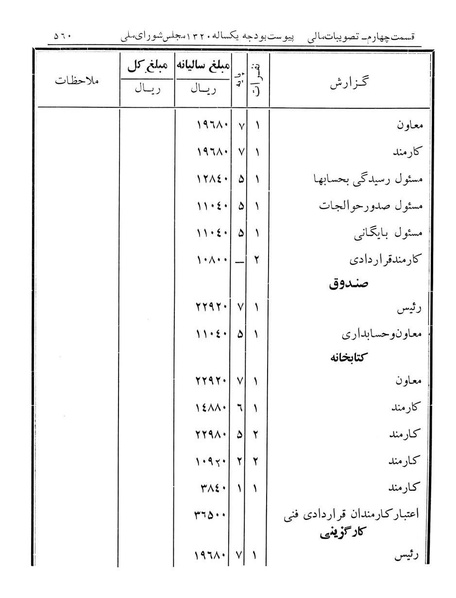 قسمت چهارم ـ تصویبات مالی پیوست بودجه یکساله ۱۳۲۰ مجلس شورای ملی ۵۶۰
گزارش نفرات پایه مبلغ سالیانه مبلغ کل ملاحظات
ریال ریال
معاون ۱ ۷ ۱۹۶۸۰
کارمند ۱ ۷ ۱۹۶۸۰
مسئول رسیدگی بحسابها ۱ ۵ ۱۲۸٤۰
مسئول صدور حوالجات ۱ ۵ ۱۱۰٤۰
مسئول بایگانی ۱ ۵ ۱۱۰٤۰
کارمند قراردادی ۲ ـ ۱۰۸۰۰
صندوق
رئیس ۱ ۷ ۲۲۹۲۰
معاون و حسابداری ۱ ۵ ۱۱۰٤۰
کتابخانه
معاون ۱ ۷ ۲۲۹۲۰
کارمند ۱ ۶ ۱٤۸۸۰
کارمند ۲ ۵ ۲۲۹۸۰
کارمند ۲ ۲ ۱۰۹۲۰
کارمند ۱ ۱ ۳۸٤۰
اعتبار کارمندان قراردادی فنی ۳۶۵۰۰
کارگزینی
رئیس ۱ ۷ ۱۹۶۸۰